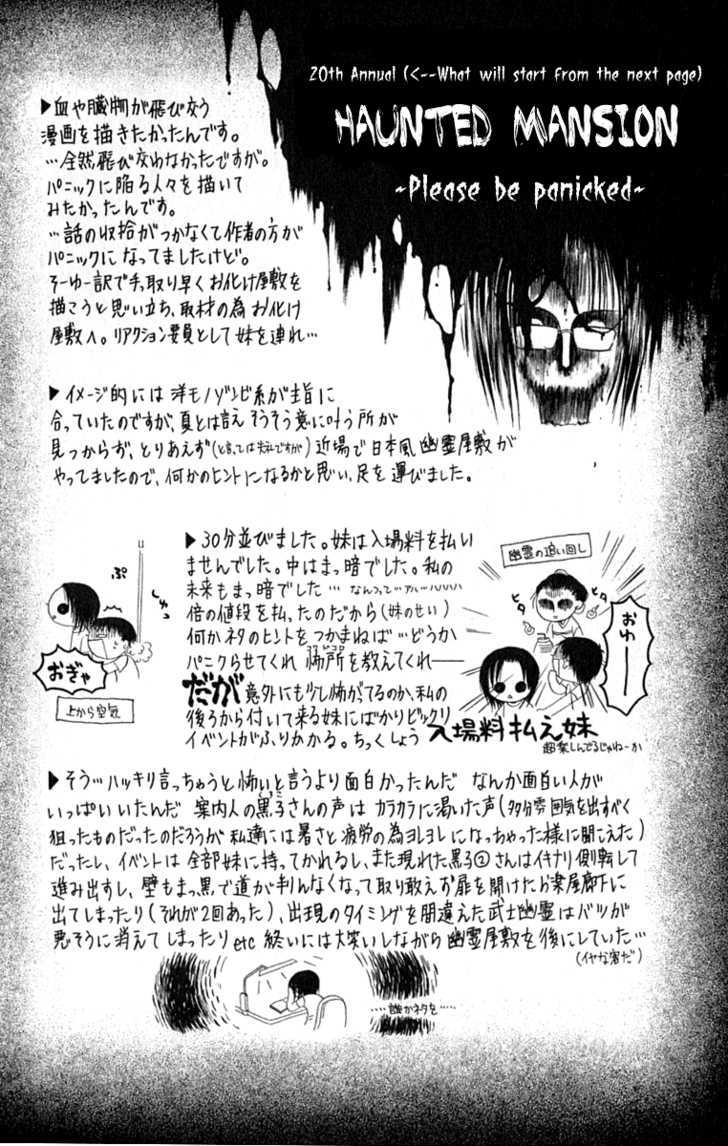 20th Annual (<--What will start from the next page)
HAUNTED MANSION
~Please be panicked~
▶血や臓物が飛び交う
漫画を描きたかったんです。
…全然飛び交わなかったですが。
パニックに陥る人々を描いて
みたかったんです。
…話の収拾がつかなくて作者の方が
パニックになってましたけど。
そーゆー訳で手っ取り早くお化け屋敷を
描こうと思い立ち、取材の為お化け
屋敷へ。リアクション要員として妹を連れ…
▶イメージ的には洋モノゾンビ系が主旨に
合っていたのですが、夏とは言えそうそう意に叶う所が
見つからず、とりあえず(と言っては失礼ですが)近場で日本風幽霊屋敷が
やってましたので、何かのヒントになるかと思い、足を運びました。
▶30分並びました。妹は入場料を払い
ませんでした。中はまっ暗でした。私の
未来もまっ暗でした…なんつって
倍の値段を払ったのだから(妹のせい)
何かネタのヒントをつかまねば…どうか
パニクらせてくれ 怖所を教えてくれ――
だが意外にも少し怖がってるのか、私の
後ろから付いて来る妹にばかりビックリ
イベントがふりかかる。ちっくしょう
入場料払え妹
超楽しんでるじゃねーか
ぷ
しゅっ
おぎゃ
上から空気
幽霊の追い回し
ヒタ
ヒタ
おゆーー
▶そう…ハッキリ言っちゃうと怖いと言うより面白かったんだ なんか面白い人が
いっぱいいたんだ 案内人の黒子さんの声はカラカラに渇いた声(多分雰囲気を出すべく
狙ったものだったのだろうが私達には暑さと疲労の為ヨレヨレになっちゃった様に聞こえた)
だったし、イベントは全部妹に持ってかれるし、また現れた黒子②さんはイキナリ側転して
進み出すし、壁もまっ黒で道が判んなくなって取り敢えず扉を開けたら楽屋廊下に
出てしまったり(それが2回あった)、出現のタイミングを間違えた武士幽霊はバツが
悪そうに消えてしまったりetc 終いには大笑いしながら幽霊屋敷を後にしていた…
(イヤな客だ)
……誰かネタを……